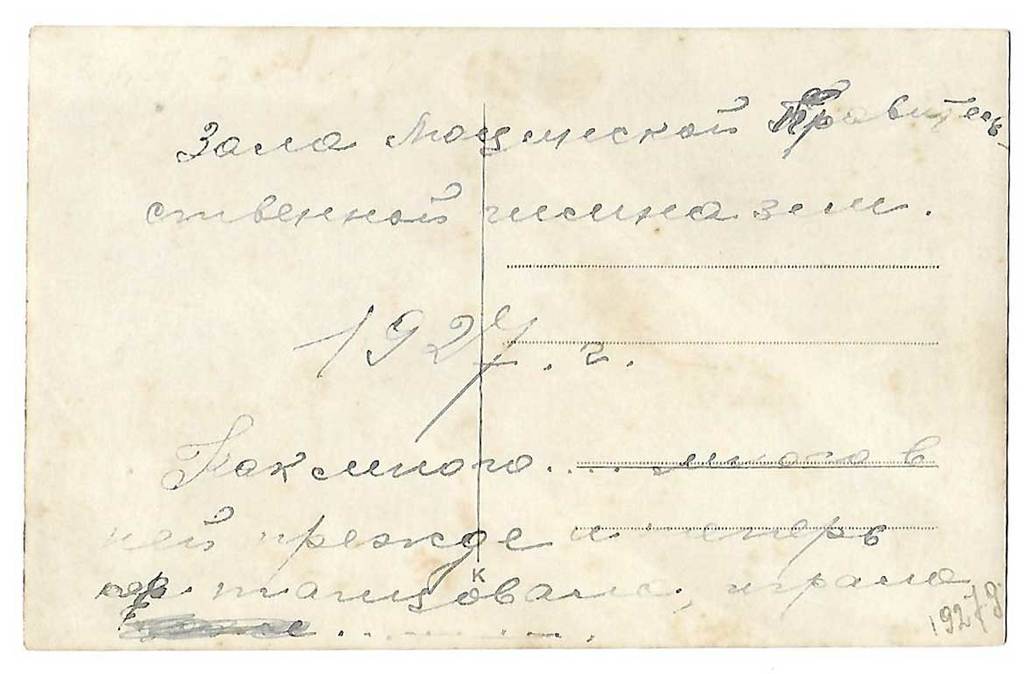 Зала Люцинской Правитель
ственной гимназии.
1927. г.
Как много.... много в
ней прежде и теперь
танцовала, играла
..........
К
1927г